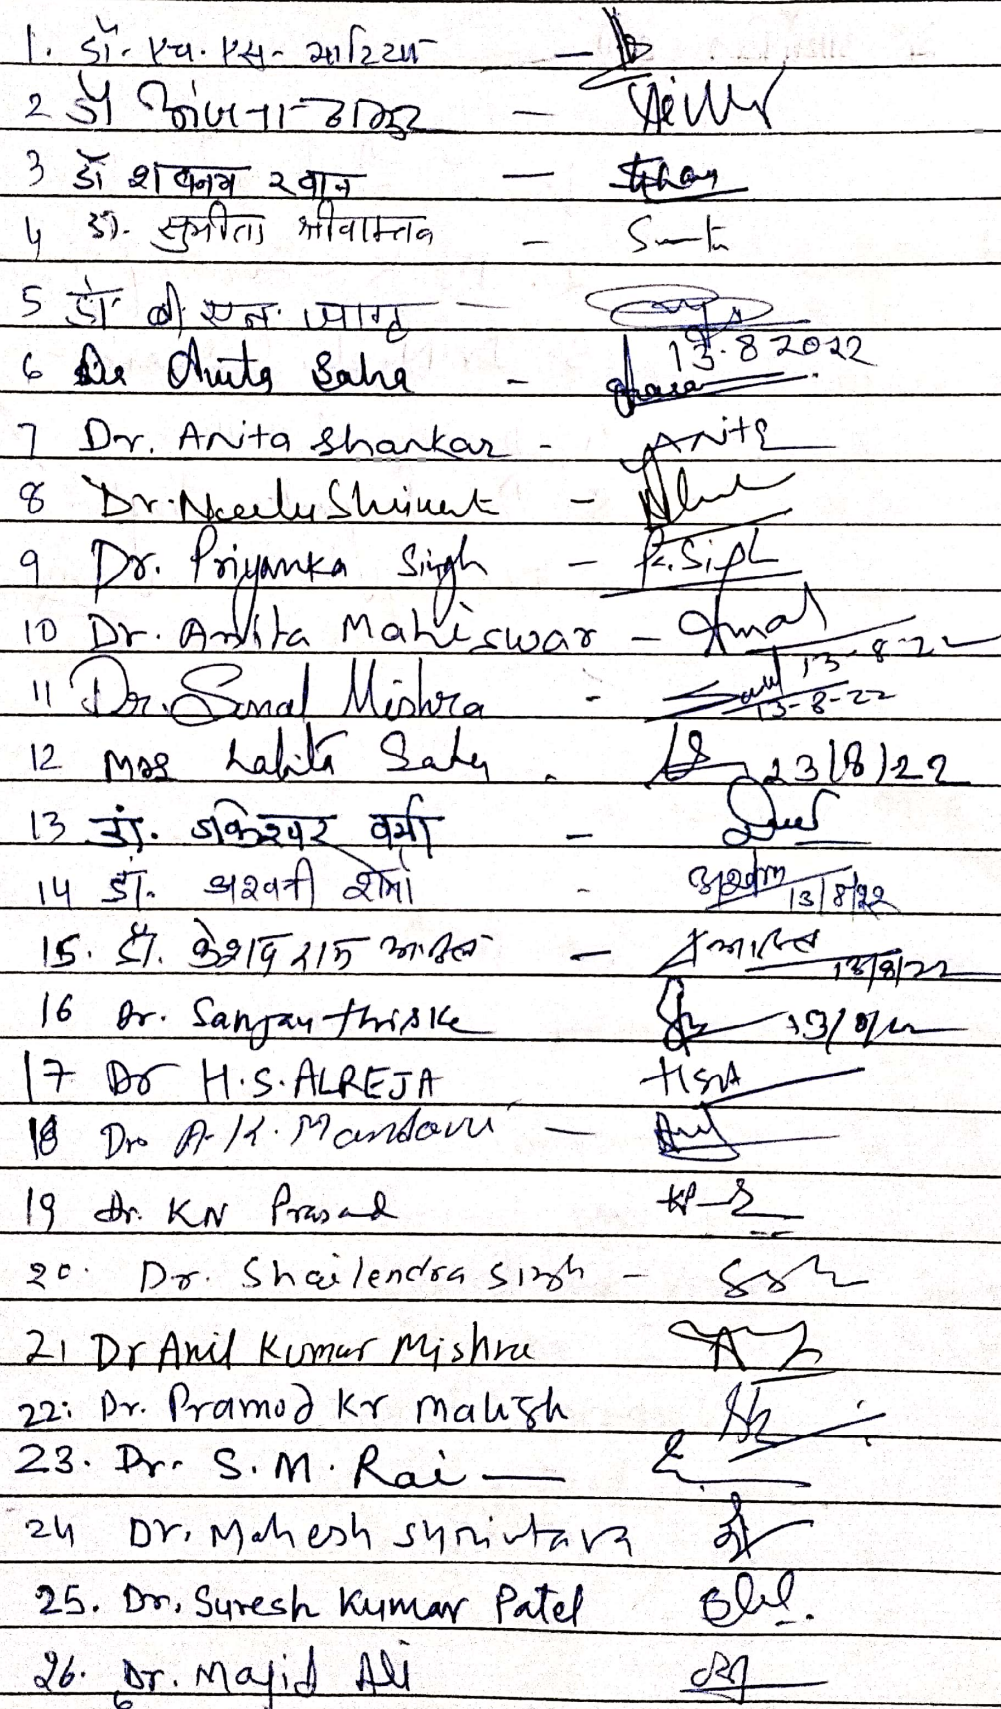 1. डॉ. एच. एस. भाटिया -
2 डॉ अंजना ठाकुर -
3 डॉ शबनम खान - Khan
4 डॉ. सुनीता श्रीवास्तव - Sunita
5 डॉ. बी एन. जागृ -
13.8 2022
6 Dr Anita Saha -
7 Dr. Anita Shankar - Anita
8 Dr. Neelu Shrivast -
9 Dr. Priyanka Singh - P. Singh
10 Dr. Anita Mahiswar - 13-8-22
11 Dr. Sonal Mishra - 13-8-22
12 Mrs Lalita Sahu - 23/8/22
13 डॉ. डाकेश्वर वर्मा -
14 डॉ. अश्वनी शर्मा - 13/8/22
15. डॉ. केशव राम आडिल - आडिल 13/8/22
16 Dr. Sanjay thiske 13/8/22
17 Dr H.S. ALREJA HSA
18 Dr A.K. Mandavi -
19 Dr. KN Prasad
20. Dr. Shailendra Singh -
21 Dr Anil Kumar Mishra
22: Dr. Pramod Kr Mahish
23. Dr. S.M. Rai -
24 Dr. Mahesh Shrivtava
25. Dr. Suresh Kumar Patel
26. Dr. Majid Ali